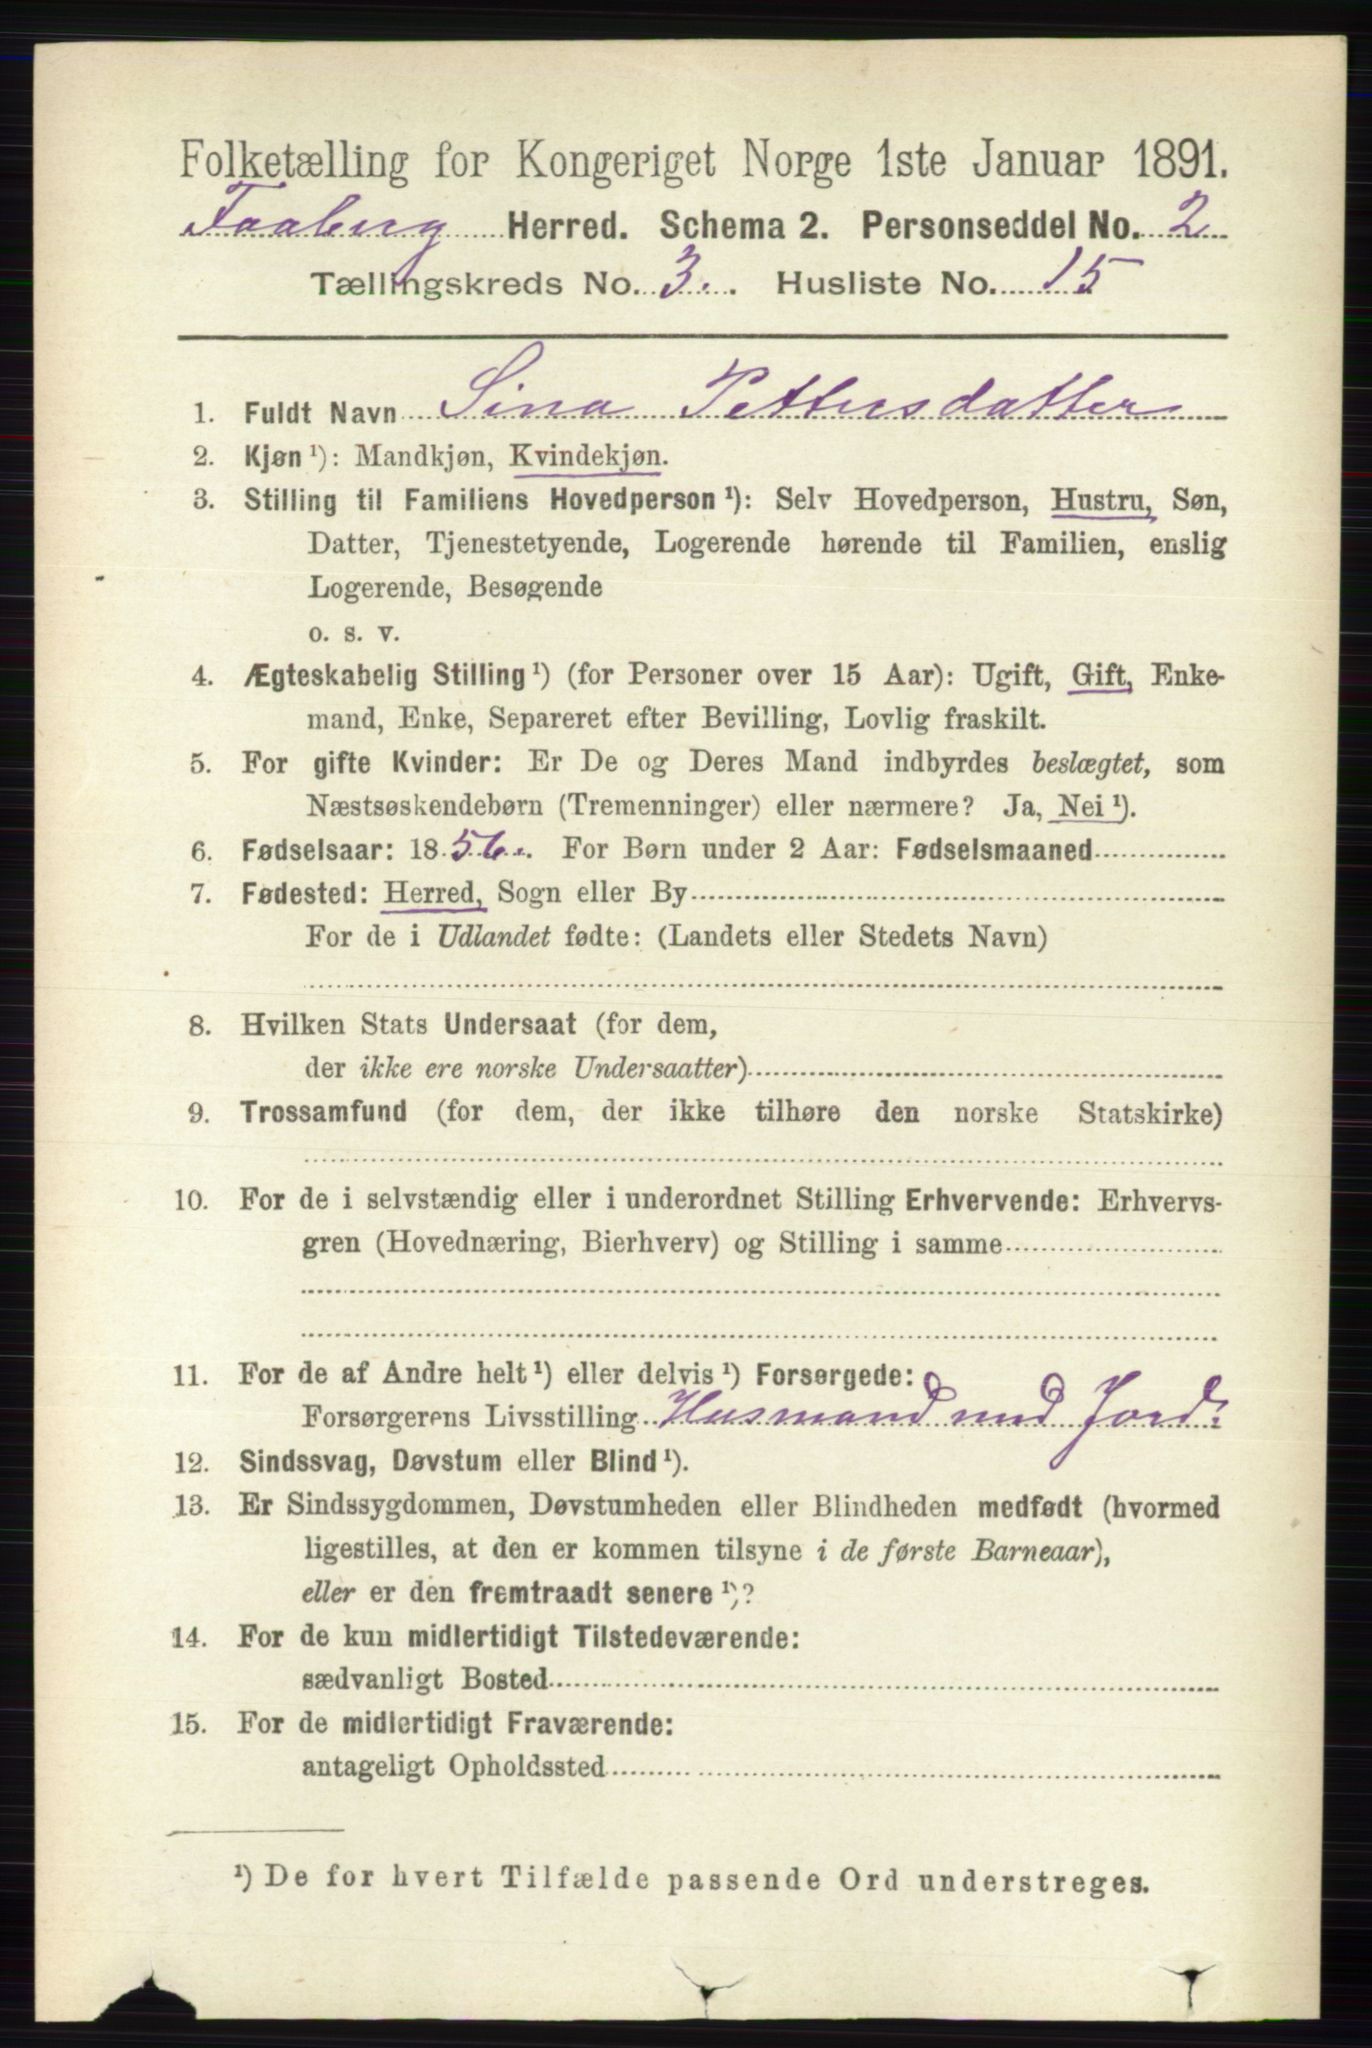 Folketælling for Kongeriget Norge 1ste Januar 1891.
Faaberg Herred. Schema 2. Personseddel No. 2
Tællingskreds No. 3. Husliste No. 15
1. Fuldt Navn Sina Pettersdatter
2. Kjøn ¹): Mandkjøn, Kvindekjøn.
3. Stilling til Familiens Hovedperson ¹): Selv Hovedperson, Hustru, Søn,
Datter, Tjenestetyende, Logerende hørende til Familien, enslig
Logerende, Besøgende
o. s. v.
4. Ægteskabelig Stilling ¹) (for Personer over 15 Aar): Ugift, Gift, Enke-
mand, Enke, Separeret efter Bevilling, Lovlig fraskilt.
5. For gifte Kvinder: Er De og Deres Mand indbyrdes beslægtet, som
Næstsøskendebørn (Tremenninger) eller nærmere? Ja, Nei ¹).
6. Fødselsaar: 1856. For Børn under 2 Aar: Fødselsmaaned
7. Fødested: Herred, Sogn eller By
For de i Udlandet fødte: (Landets eller Stedets Navn)
8. Hvilken Stats Undersaat (for dem,
der ikke ere norske Undersaatter)
9. Trossamfund (for dem, der ikke tilhøre den norske Statskirke)
10. For de i selvstændig eller i underordnet Stilling Erhvervende: Erhvervs-
gren (Hovednæring, Bierhverv) og Stilling i samme
11. For de af Andre helt ¹) eller delvis ¹) Forsørgede:
Forsørgerens Livsstilling Husmand med Jord.
12. Sindssvag, Døvstum eller Blind ¹).
13. Er Sindssygdommen, Døvstumheden eller Blindheden medfødt (hvormed
ligestilles, at den er kommen tilsyne i de første Barneaar),
eller er den fremtraadt senere ¹)?
14. For de kun midlertidigt Tilstedeværende:
sædvanligt Bosted
15. For de midlertidigt Fraværende:
antageligt Opholdssted
¹) De for hvert Tilfælde passende Ord understreges.